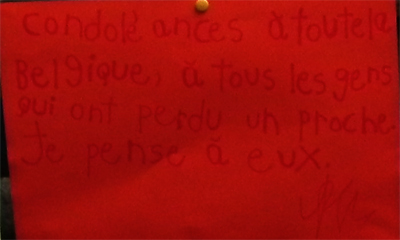 condoléances à toute la
Belgique, à tous les gens
qui ont perdu un proche
Je pense à eux.